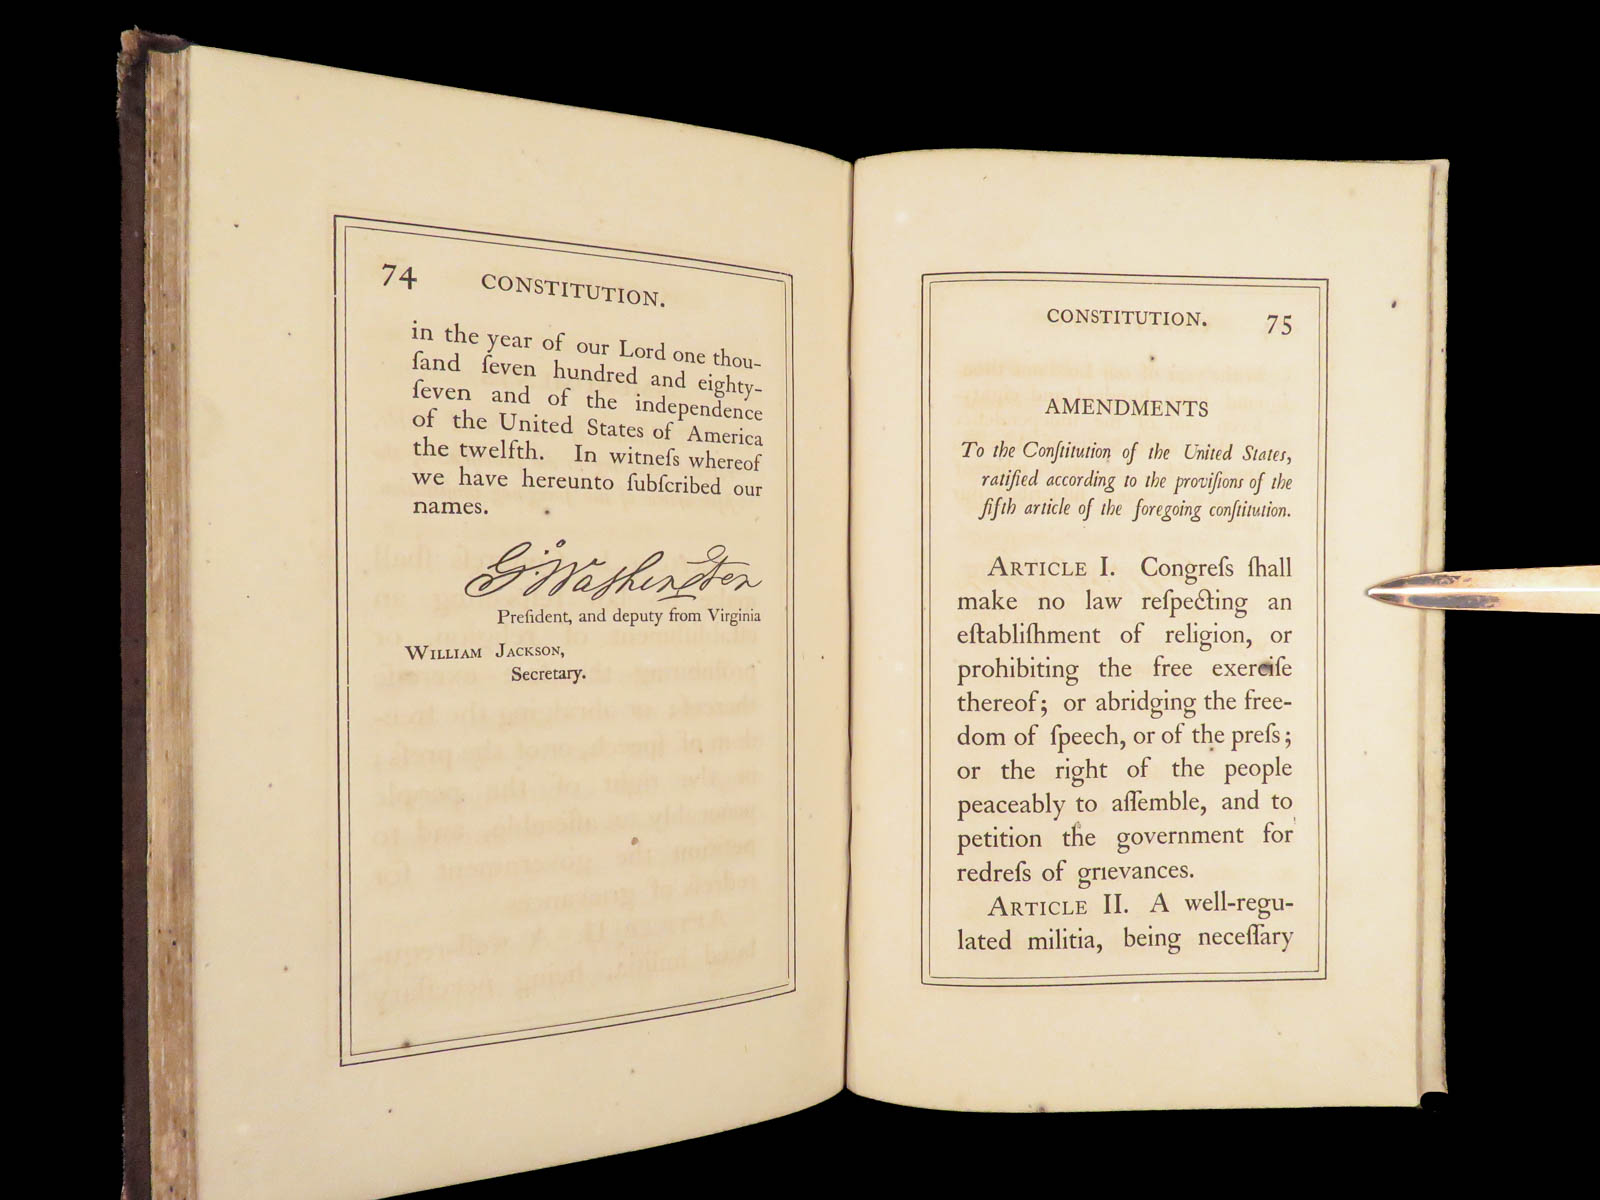 74 CONSTITUTION.
in the year of our Lord one thou-
ſand ſeven hundred and eighty-
ſeven and of the independence
of the United States of America
the twelfth. In witneſs whereof
we have hereunto ſubſcribed our
names.
Go. Washington
Preſident, and deputy from Virginia
WILLIAM JACKSON,
Secretary.
CONSTITUTION. 75
AMENDMENTS
To the Conſtitution of the United States,
ratified according to the proviſions of the
fifth article of the foregoing conſtitution.
ARTICLE I. Congreſs ſhall
make no law reſpecting an
eſtabliſhment of religion, or
prohibiting the free exerciſe
thereof; or abridging the free-
dom of ſpeech, or of the preſs;
or the right of the people
peaceably to aſſemble, and to
petition the government for
redreſs of grievances.
ARTICLE II. A well-regu-
lated militia, being neceſſary